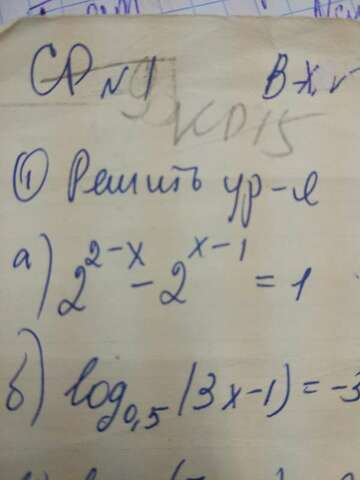 СР №1
① Решить ур-я
а) 2^{2-x} - 2^{x-1} = 1
б) log_{0,5} (3x-1) = -3